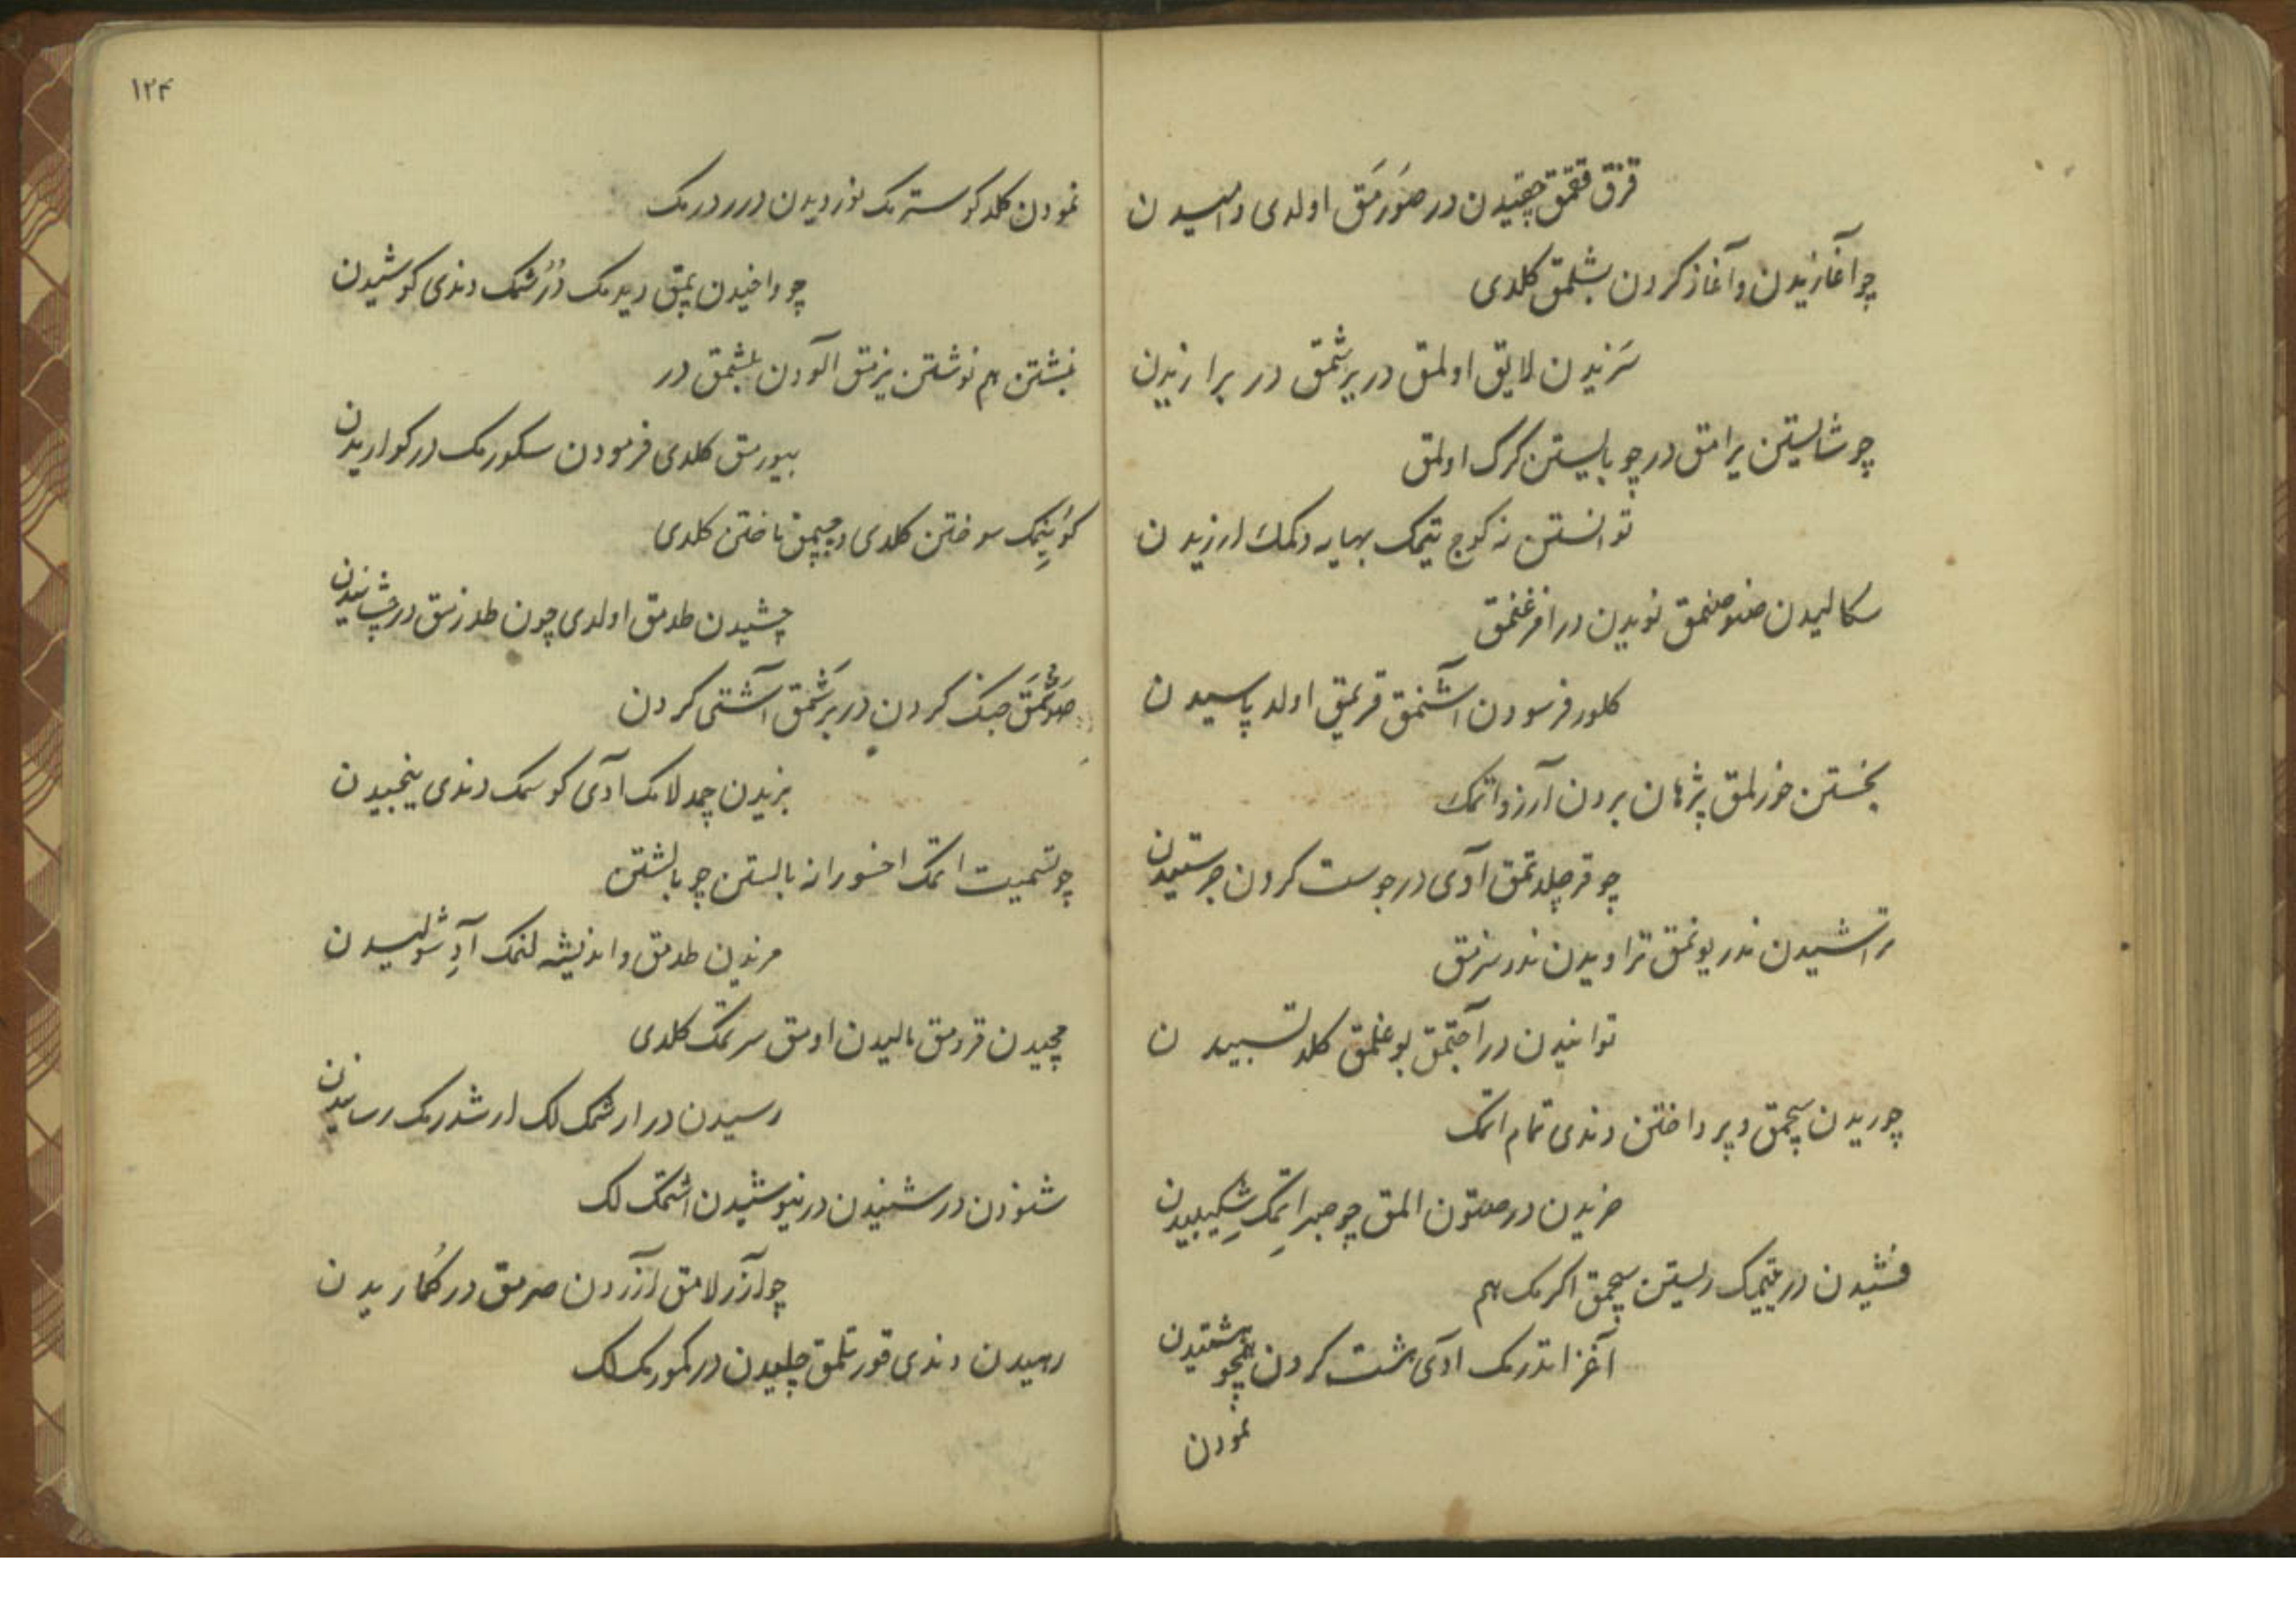 قزق ققمق چقیدن در صورمق اولدی وامیدن
چو آغازیدن و آغاز کردن بشلمق کلدی
سزیدن لایق اولمق در یرشمق در برازیدن
چو شایستن یرامق در چو بایستن کرک اولمق
توانستن نه کوج یتمک بهایه دکمك ارزیدن
سکالیدن صنو صنمق نویدن در افرغنمق
کلور فرسودن اشنمق قریمق اولد پاسیدن
بخستن خورلمق پژهان بردن آرزو اتمک
چو قرچلدتمق آدی در جوست کردن جرستیدن
تراشیدن ندر یونمق تراویدن ندر سزمق
توانیدن در آجتمق بوغلمق کلد تسبیدن
چو ریدن سچمق و پرداختن دندی تمام اتمک
خریدن در صتون المق چو صبر اتمک شکیبیدن
فشیدن در یتمک ریستن سچمق اکرمک هم
آغز اندرمک ادی مشت کردن همچو مشتیدن
نمودن
۱۲۴
نمودن کلد کوسترمک نوردیدن دررد درمک
چو واخیدن یمق دیدمک دررشمک دندی کوشیدن
نبشتن هم نوشتن یزمق آلودن بلشمق در
بیورمق کلدی فرمودن سکورمک در کواریدن
کوینمک سوختن کلدی و چپمق تاختن کلدی
چشیدن طدمق اولدی چون طدرزمق در چشانیدن
صوشمق جنک کردن در برشمق آشتی کردن
بزیدن چمدلامک ادی کوسمک دندی ینجیدن
چو تسمیت اتمک اخسورانه بالستن چو بالشتن
مزیدن طدمق و اندیشه لنمک آد شولیدن
مچیدن قرومق مالیدن اومق سرتمک کلدی
رسیدن در ارشمک لک ارشدرمک رسانیدن
شنودن در شنیدن در نیوشیدن اشتمک لک
چو آزرلامق آزردن صرمق در کماریدن
رهیدن دندی قورتلمق چلیدن در کمورمک لک